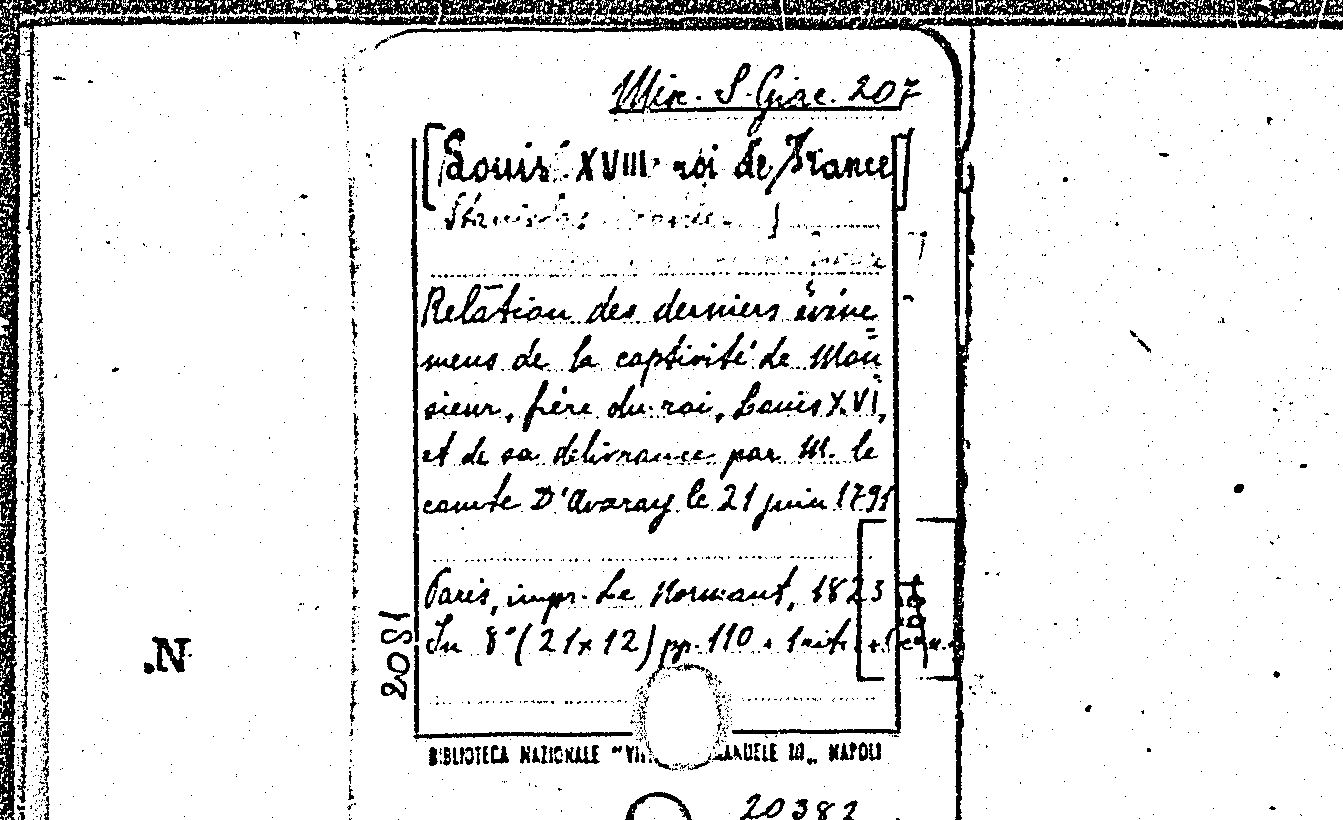 Misc. S. Giac. 207
[Louis XVIII roi de France]
Relation des derniers évène
mens de la captivité de Mon
sieur, frère du roi, Louis XVI,
et de sa délivrance par M. le
comte D'Avaray le 21 juin 1791
Paris, impr. Le Normant, 1823
In 8° (21x12) pp. 110
2081
.N
BIBLIOTECA NAZIONALE NAPOLI
20382